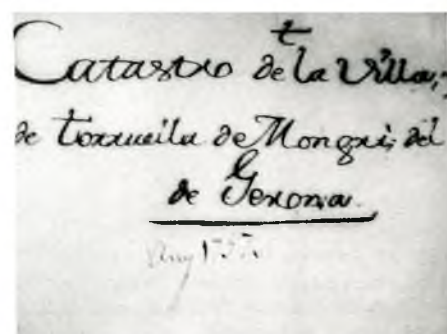 t
Catastro de la Villa,
de torruella de Mongri, del
de Gerona